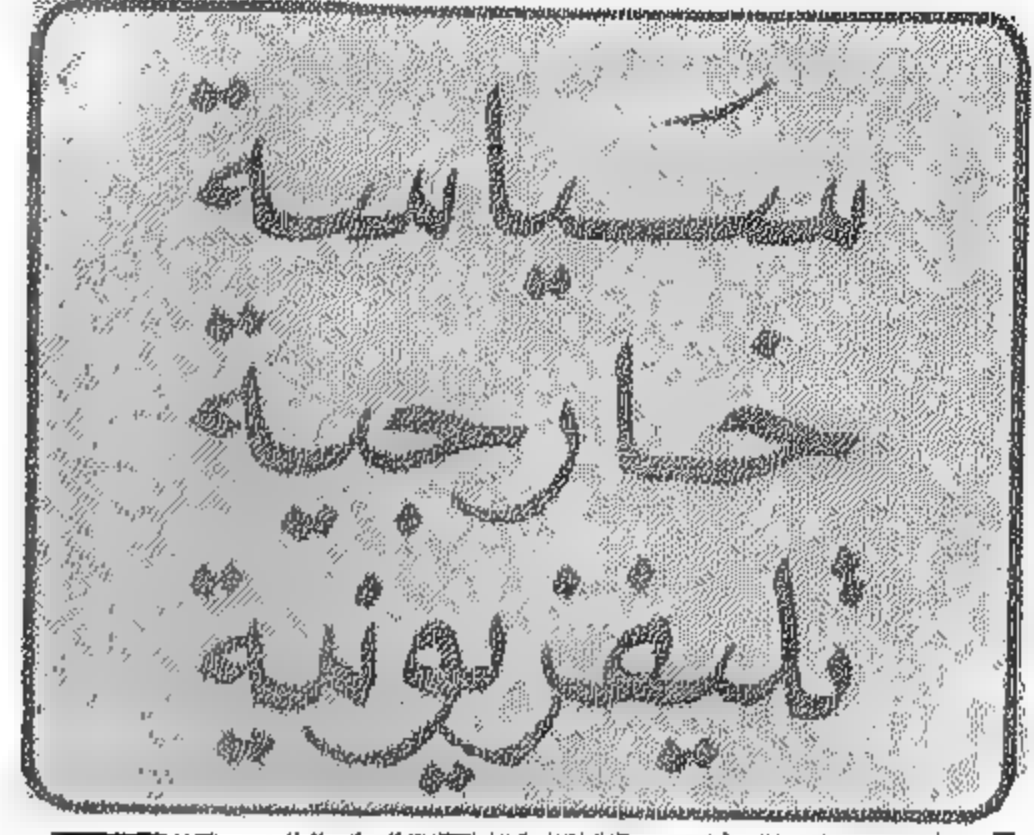 سياسة
خارجية
تليفزيونية